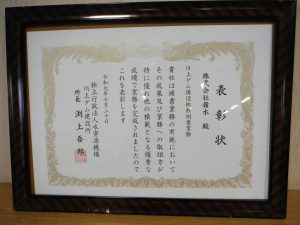 表彰状
株式会社嶺水 殿
川上ダム建設地形測量業務
貴社は頭書業務の実施において
その成果及び業務への取組方が
特に優れ他の模範となる優秀な
成績で業務を完成されましたので
これを表彰します
令和元年七月三十日
独立行政法人水資源機構
川上ダム建設所
所長 渕上吾郎